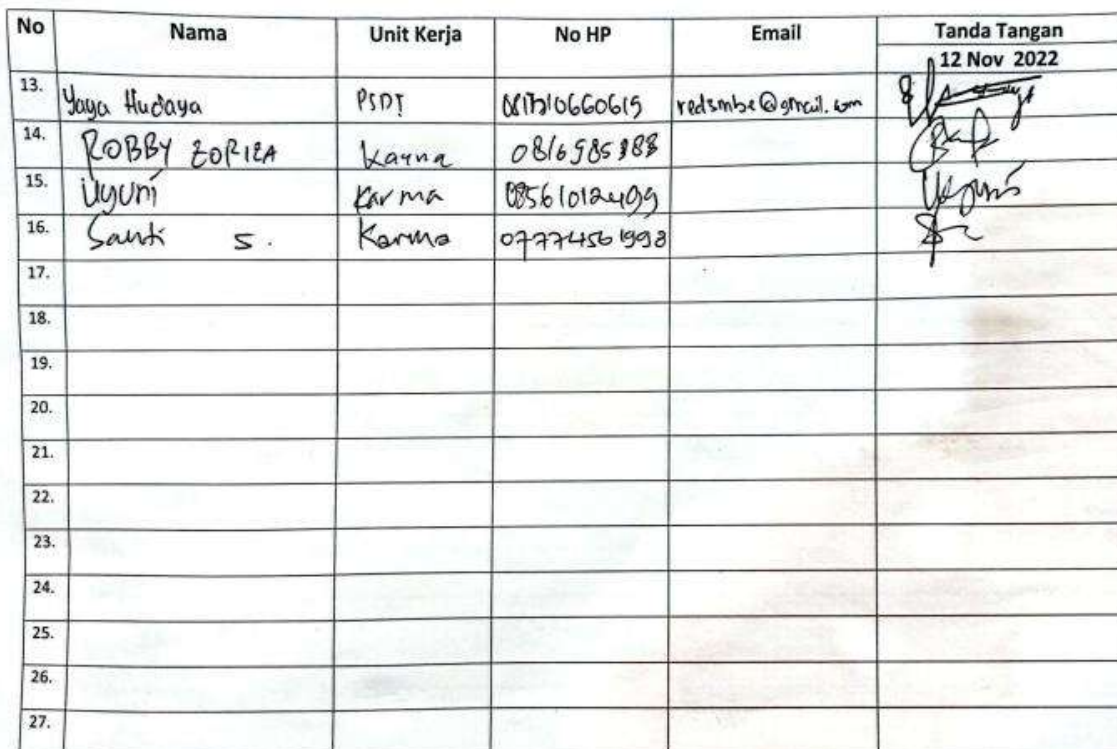 No Nama Unit Kerja No HP Email Tanda Tangan
12 Nov 2022
13. Yaya Hudaya PSDT redsmbe@gmail.com
14. ROBBY ZORIZA Karma 0816985888
15. Uyuni Karma 08561012499
16. Santi S. Karma 07774561998
17.
18.
19.
20.
21.
22.
23.
24.
25.
26.
27.